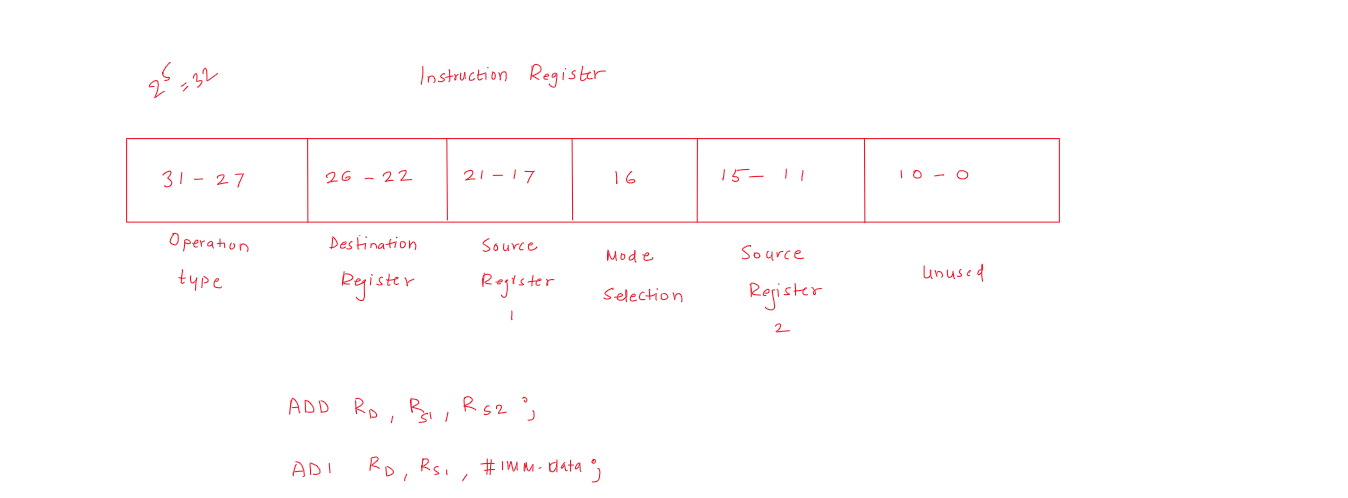 2^5 = 32
Instruction Register
31 - 27 26 - 22 21 - 17 16 15 - 11 10 - 0
Operation type
Destination Register
Source Register 1
Mode Selection
Source Register 2
Unused
ADD RD, RS1, RS2 ;
ADI RD, RS1, #IMM-Data ;